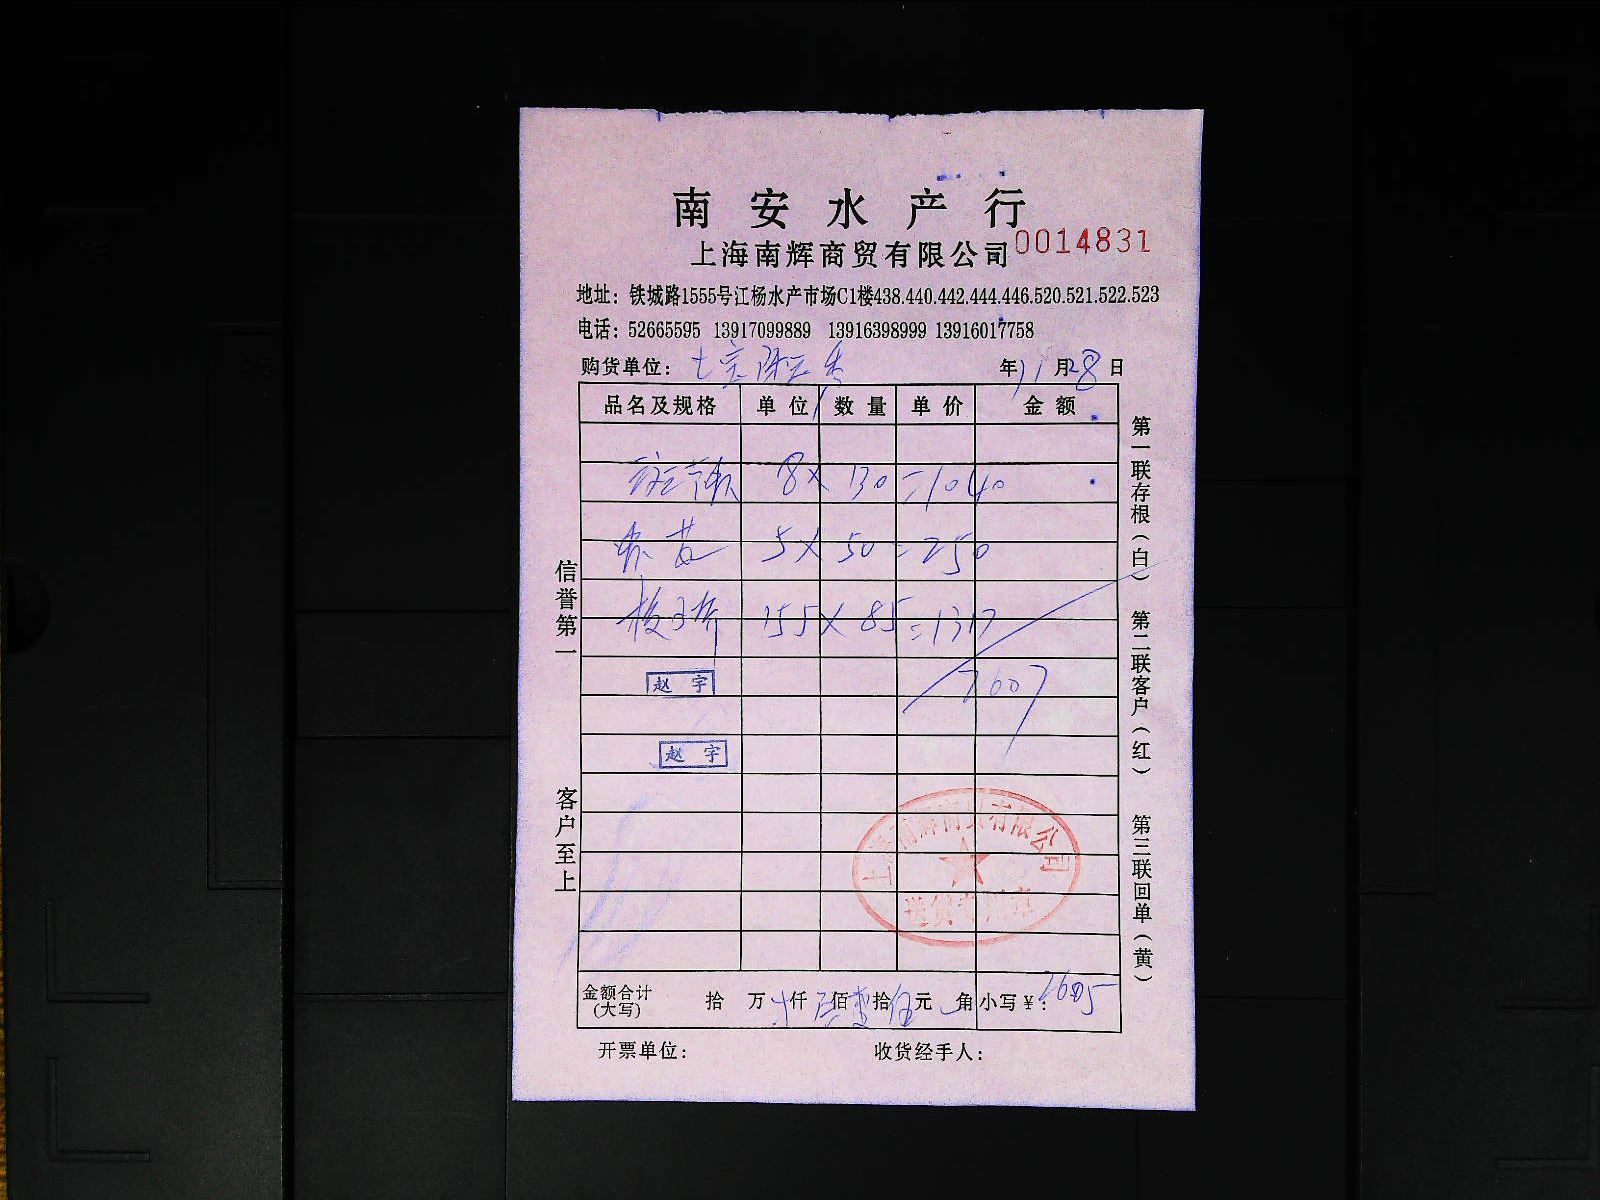 南安水产行
上海南辉商贸有限公司 0014831
地址：铁城路1555号江杨水产市场C1楼438.440.442.444.446.520.521.522.523
电话：52665595 13917099889 13916398999 13916017758
购货单位： 年11月28日
品名及规格 单位 数量 单价 金额
8×130=1040
5×50=250
155×85=1317
2607
赵宇
赵宇
上海南辉商贸有限公司
送货专用章
金额合计(大写) 拾 万 仟 佰 拾 伍元 角 小写￥：2605
开票单位： 收货经手人：
信誉第一 客户至上
第一联存根(白) 第二联客户(红) 第三联回单(黄)